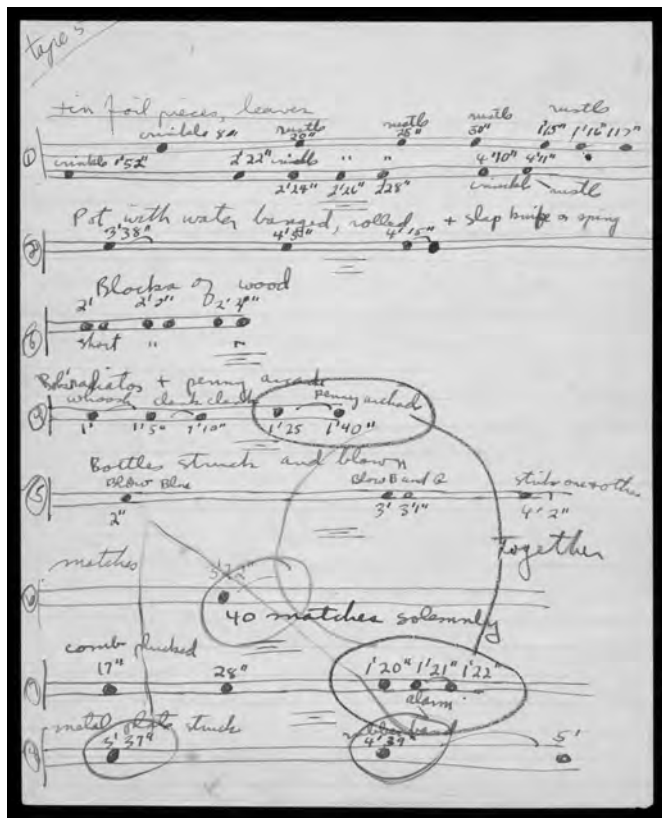 tape 5
tin foil pieces, leaves
① crinkle 8" rustle 20" rustle 25" rustle 30" rustle 1'15" 1'16" 117"
crinkle 1'52" 2'22" crinkle " " 4'10" 4'11"
2'24" 2'26" 2'28" crinkle rustle
Pot with water banged, rolled, + slap knife or spring
② 3'38" 4'5" 4'15"
Blocks of wood
2' 2'2" 2'4"
short " "
radiator + penny arcade
④ whoosh clank clank penny arcade
1' 1'5" 1'10" 1'25 1'40"
Bottles struck and blown
⑤ Blow Blue Blow B and 2 strike one + other
2" 3' 3'1" 4'2"
together
matches
40 matches solemnly
comb plucked
17" 28" 1'20" 1'21" 1'22"
alarm
metal plate struck rubber band
3'37" 4'39" 5'